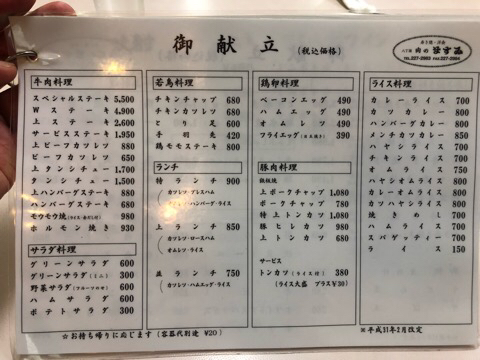 御献立 (税込価格)
肉のますゐ
TEL.227-2983 FAX.227-2984
牛肉料理
スペシャルステーキ 5,500
Wステーキ 4,900
上ステーキ 2,600
サービスステーキ 1,950
上ビーフカツレツ 880
ビーフカツレツ 650
上タンシチュー 1,700
タンシチュー 1,500
上ハンバーグステーキ 880
ハンバーグステーキ 680
モウモウ焼 980
ホルモン焼き 930
サラダ料理
グリーンサラダ 600
グリーンサラダ(ミニ) 300
野菜サラダ 600
ハムサラダ 600
ポテトサラダ 300
若鳥料理
チキンチャップ 680
チキンカツレツ 680
とり足 600
手羽先 420
鶏モモステーキ 800
ランチ
特ランチ 900
上ランチ 850
カツレツ・ロースハム
オムレツ・ライス
並ランチ 750
カツレツ・ハムエッグ・ライス
鶏卵料理
ベーコンエッグ 490
ハムエッグ 490
オムレツ 490
フライエッグ 390
豚肉料理
上ポークチャップ 1,080
ポークチャップ 780
特上トンカツ 1,080
豚ヒレカツ 980
上トンカツ 680
サービス
トンカツ(ライス付) 380
(ライス大盛 プラス¥30)
ライス料理
カレーライス 700
カツカレー 800
ハンバーグカレー 800
メンチカツカレー 850
ハヤシライス 700
チキンライス 700
オムライス 750
ハヤシオムライス 800
カレーオムライス 800
カツハヤシライス 800
焼きめし 700
ハムライス 700
スパゲッティー 700
ライス 150
☆お持ち帰りに応じます(容器代別途 ¥20)
※平成31年2月改定